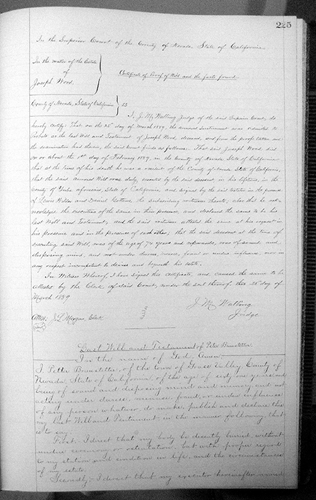 225
In the Superior Court of the County of Nevada State of California
In the matter of the Estate
of
Joseph Wood.
Certificate of Proof of Will and the facts found
County of Nevada, State of California } ss
I, J. M. Walling Judge of the said Superior Court, do
hereby certify: That on the day of March 1899, the annexed instrument was admitted to
Probate as the last Will and Testament of Joseph Wood, deceased, and from the proofs taken and
the examination had therein, the said Court finds as follows: That said Joseph Wood died
on or about the day of February 1899, in the County of Nevada State of California;
that at the time of his death he was a resident of the County of Nevada State of California,
that the said annexed Will was duly executed by the said deceased in his lifetime in the
County of State aforesaid, State of California and signed by the said testator in the presence
of and Daniel the subscribing witnesses thereto, also that he ack-
nowledged the execution of the same in their presence, and declared the same to be his
last Will and Testament, and the said witnesses attested the same at his request in
his presence and in the presence of each other; that the said deceased at the time of
executing said Will, was of the age of years and upwards, was of sound and
disposing mind, and not under duress, menace, fraud or undue influence, nor in
any respect incompetent to devise and bequeath his estate.
In Witness Whereof, I have signed this certificate, and caused the same to be
attested by the Clerk of said Court, under the seal thereof this day of
March 1899
J. M. Walling
Attest, Clerk
Judge
Last Will and Testament of Peter Bennalleck
In the name of God, Amen
I, Peter Bennalleck, of the town of Grass Valley County of
Nevada, State of California, of the age of sixty years and
being of sound and disposing mind and memory, and not
acting under duress, menace, fraud or undue influence
of any person whatever do make publish and declare this
my last Will and Testament in the manner following, that
is to say:
First. I direct that my body be decently buried without
undue ceremony or ostentation but with proper regard
to my station and condition in life and the circumstances
of my estate.
Secondly. I direct that my executor hereinafter named